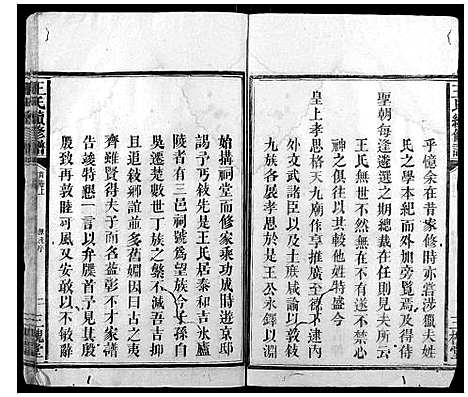 乎憶余在昔家修時亦嘗涉獵夫姓
氏之學本紀而外加旁覽焉及得待
聖朝每逢遴選之期總裁在任則見夫所云
王氏無不然無在不有遂不禁心
神之俱與以其較他姓特盛今
皇上孝思格天九廟作享推廣至德不遺內
外文武諸臣以及士庶咸諭以敦敘
九族各展孝思於是王公永鐸以淵
始搆祠堂而修家乘功成時遊京邸
謁予丐敘先是王氏居泰和吉水廬
陵者有三邑祠號爲望族今子孫自
吳遷楚數世丁族之繁不減吾吉抑
且追敘鄉誼並多舊媚因曰古之交
齊雖賢得夫子而各益彰不才家譜
告竣特懇一言以弁牒首予見其殷
殷致再敦睦可風又安敢以不敏辭
王氏續修譜
三槐堂